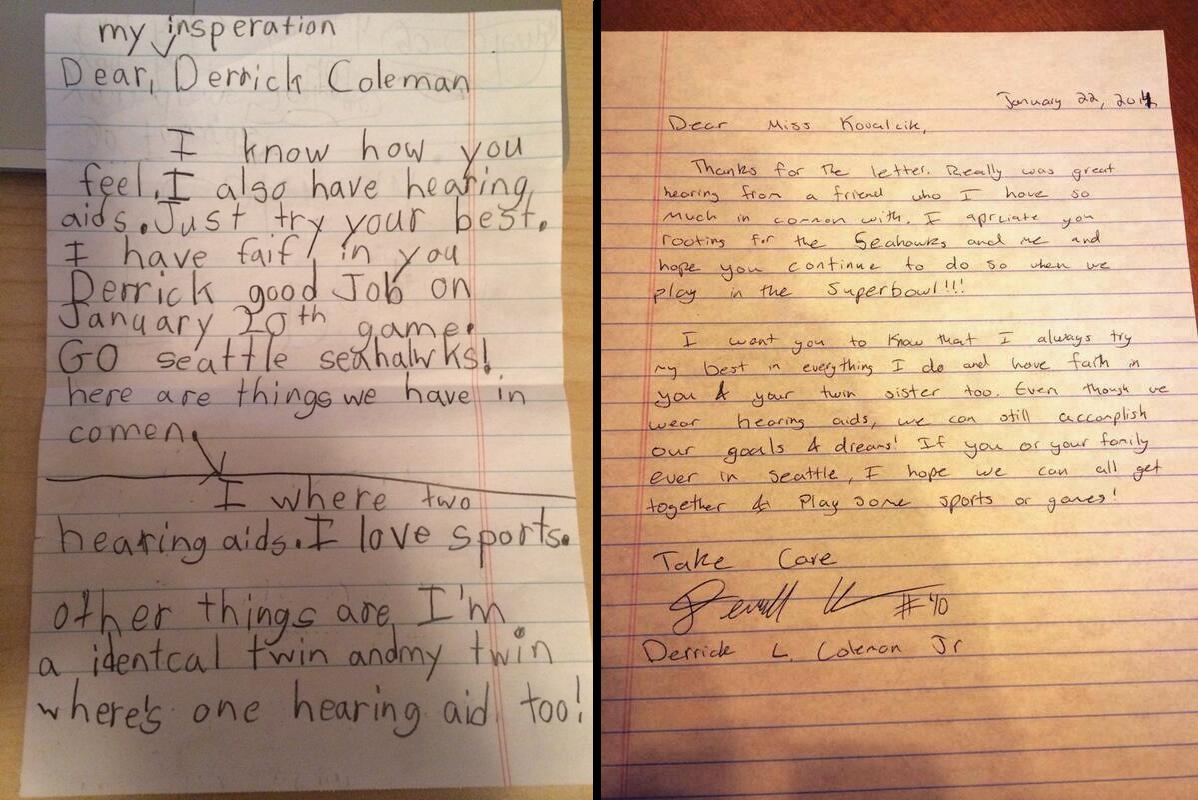 my insperation
Dear, Derrick Coleman
I know how you
feel. I also have hearing
aids. Just try your best.
I have faif in you
Derrick good Job on
January 20th game.
GO seattle seahawks!
here are things we have in
comen.
I where two
hearing aids. I love sports.
other things are I'm
a identcal twin andmy twin
where's one hearing aid too!
January 22, 2014
Dear Miss Kovalcik,
Thanks for the letter. Really was great
hearing from a friend who I have so
much in common with. I aprciate you
rooting for the Seahawks and me and
hope you continue to do so when we
play in the Superbowl!!!
I want you to know that I always try
my best in everything I do and have faith in
you & your twin sister too. Even though we
wear hearing aids, we can still accomplish
our goals & dreams! If you or your family
ever in seattle, I hope we can all get
together & Play some sports or games!
Take Care
#40
Derrick L. Coleman Jr